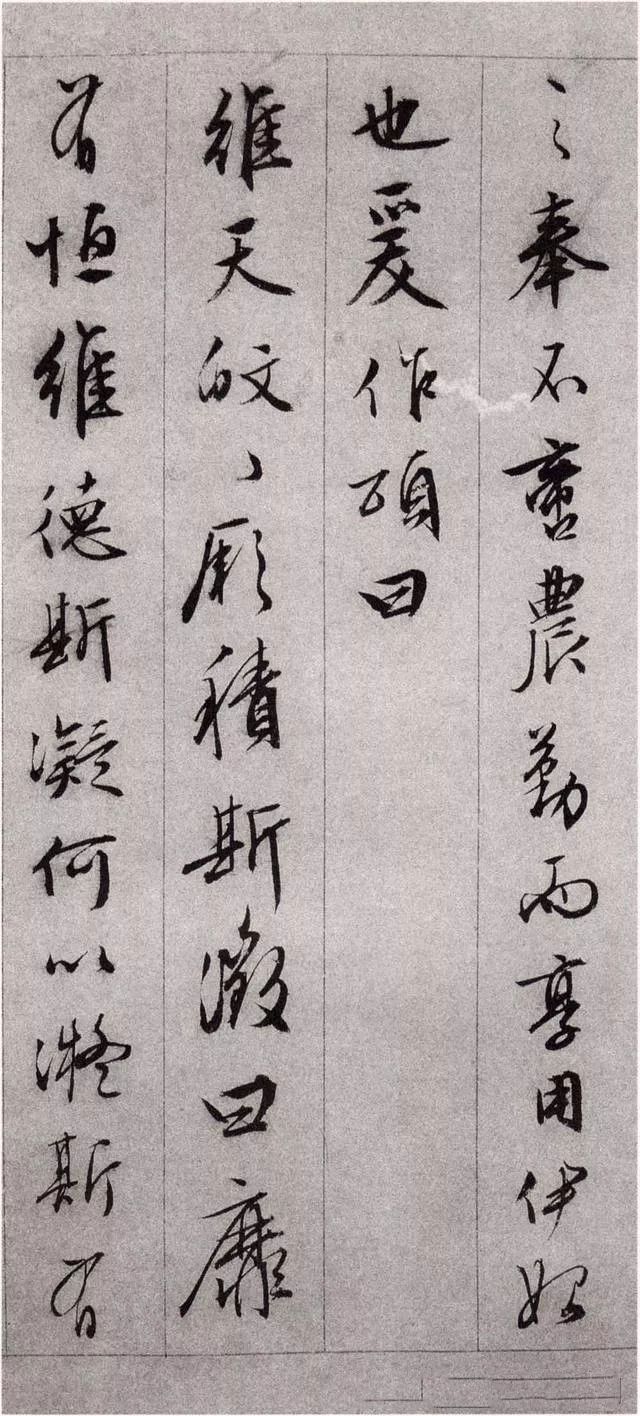 之奉不啻農勤而享用伊始
也爰作頌曰
維天皎〻厥積斯澂曰靡
有恒維德斯凝何以凝斯有